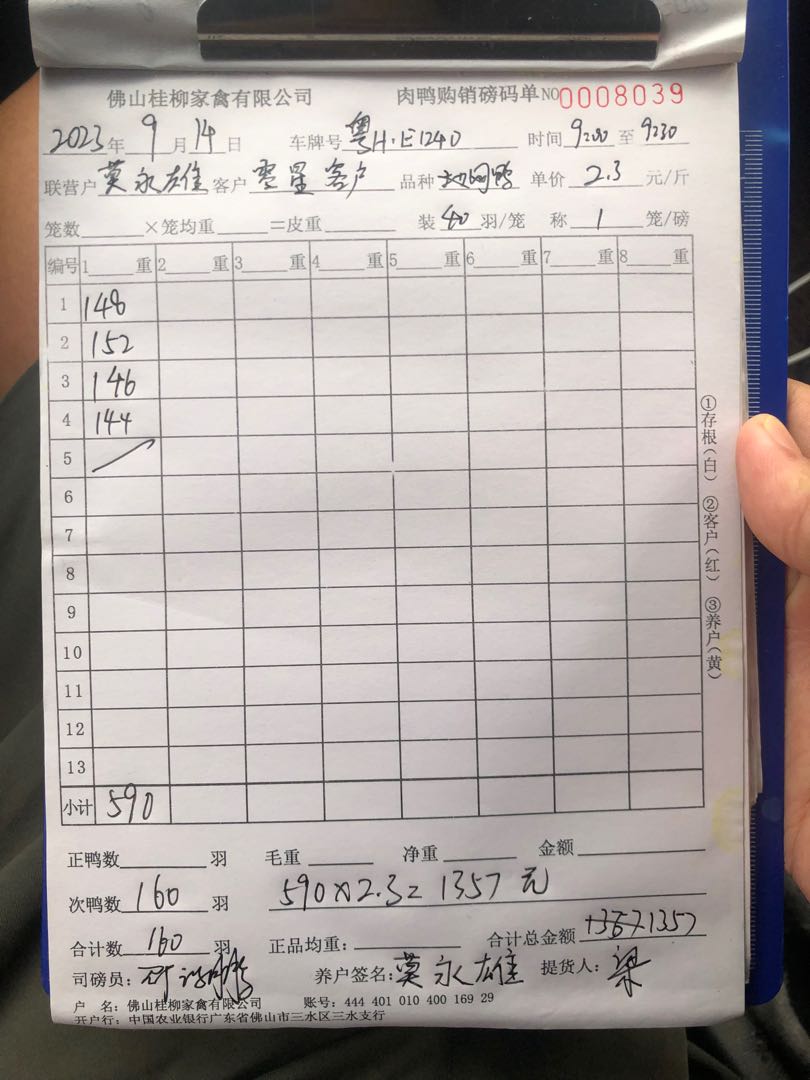 佛山桂柳家禽有限公司 肉鸭购销磅码单 NO0008039
2023年9月14日 车牌号粤H·E1240 时间9:00至9:30
联营户莫永雄 客户零星客户 品种 单价2.3元/斤
笼数 ×笼均重 =皮重 装40羽/笼 称1笼/磅
编号 1 重 2 重 3 重 4 重 5 重 6 重 7 重 8 重
1 148
2 152
3 146
4 144
5
6
7
8
9
10
11
12
13
小计 590
①存根(白) ②客户(红) ③养户(黄)
正鸭数 羽 毛重 净重 金额
次鸭数160羽 590×2.3=1357元
合计数160羽 正品均重: 合计总金额 1357
司磅员: 养户签名:莫永雄 提货人:梁
户 名:佛山桂柳家禽有限公司 账号:444 401 010 400 169 29
开户行:中国农业银行广东省佛山市三水区三水支行